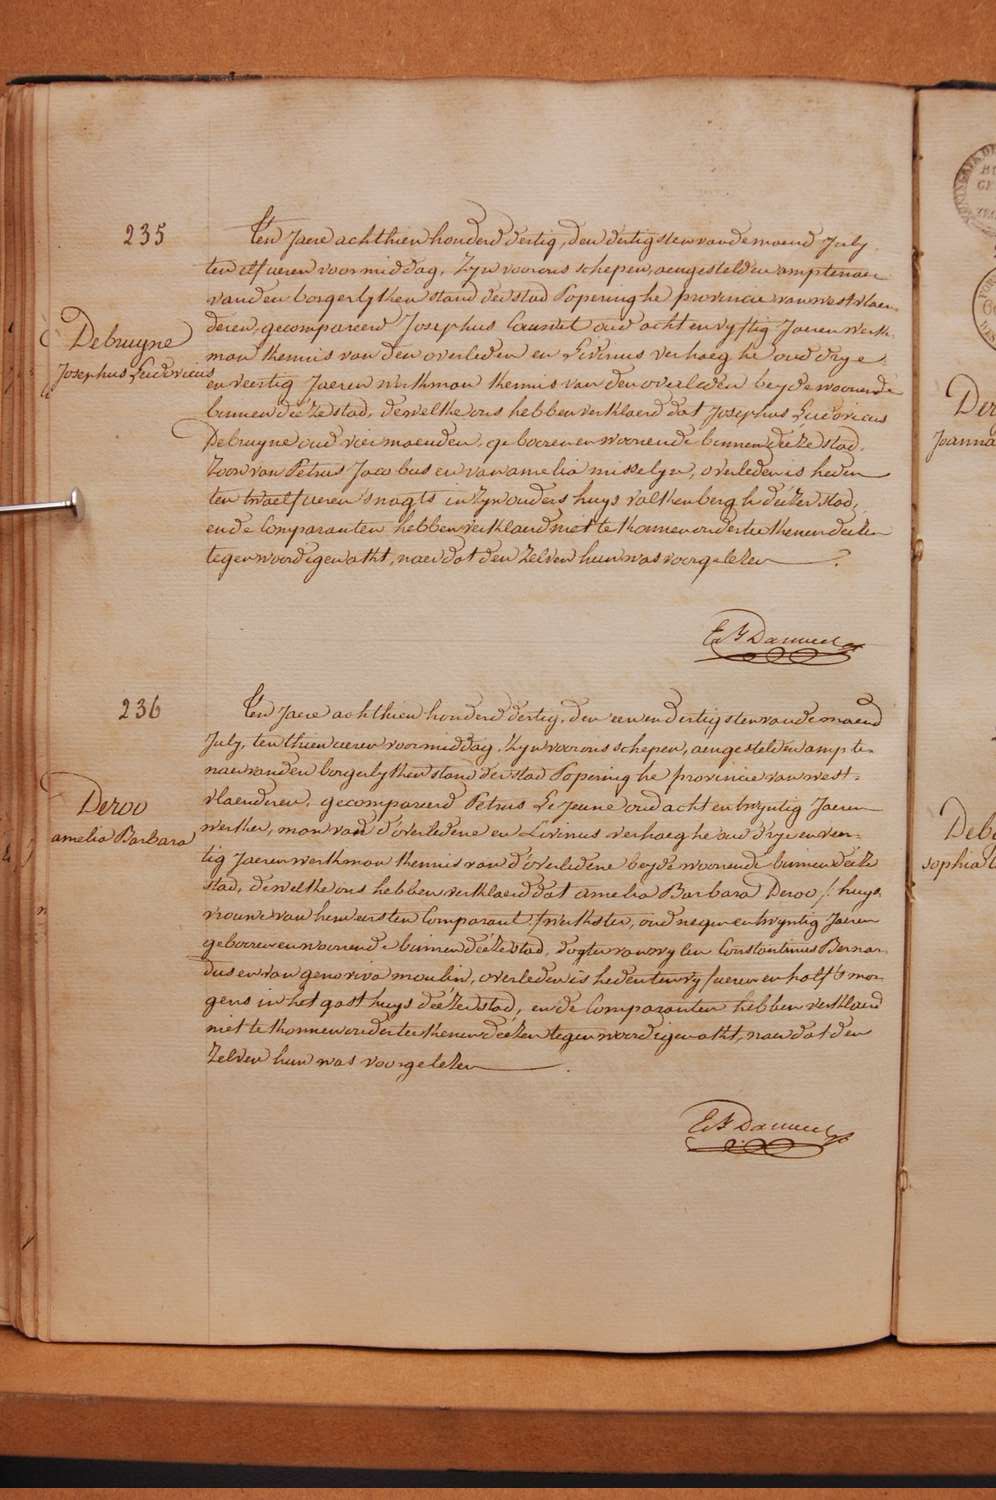 235
Debruyne
Josephus Ludovicus
Ten Jaere achthien honderd dertig, den dertigsten van de maend July
ten elf ueren voormiddag, Zyn voor ons schepen, aengestelden amptenaer
van den borgerlyken stand der stad Poperinghe provincie van westvlaen-
deren, gecompareerd Josephus Cauwet oud acht en vyftig Jaeren werk-
man kennis van den overleden en Livinus verhaeghe oud drye
en veertig Jaeren werkman kennis van den overleden beyde woonende
binnen deéze stad, dewelke ons hebben verklaerd dat Josephus Ludovicus
Debruyne oud vier maenden, gebooren en woonende binnen deéze stad,
Zoon van Petrus Jacobus en van amelia misselyn, overleden is heden
ten twaelf ueren 's nagts in Zyn ouders huys valkenberg h deézer stad,
en de Comparanten hebben verklaerd niet te konnen onderteekenen deézen
tegenwoordigen akt, naer dat den Zelven hun was voorgelezen
236
Deroo
amelia Barbara
Ten Jaere achthien honderd dertig, den een en dertigsten van de maend
July, ten thien ueren voormiddag, Zyn voor ons schepen, aengestelden ampte-
naer van den borgerlyken stand der stad Poperinghe provincie van west-
vlaenderen, gecompareerd Petrus Lejeune oud acht en twyntig Jaeren
werker, man van d'overledene en Livinus verhaeghe oud drye en veer-
tig Jaeren werkman kennis van d'overledene beyde woonende binnen deéze
stad, dewelke ons hebben verklaerd dat amelia Barbara Deroo /: huys
vrouwe van hem eersten Comparant :/ werkster, oud negen en twyntig Jaeren
gebooren en woonende binnen deéze stad, dogter van wylen Constantinus Bernar-
dus en van genoviva moulin, overleden is heden ten vyf ueren en half 's mor-
gens in het gasthuys deézer stad, en de Comparanten hebben verklaerd
niet te konnen onderteekenen deézen tegenwoordigen akt, naer dat den
Zelven hun was voorgelezen
Joanna
sophia